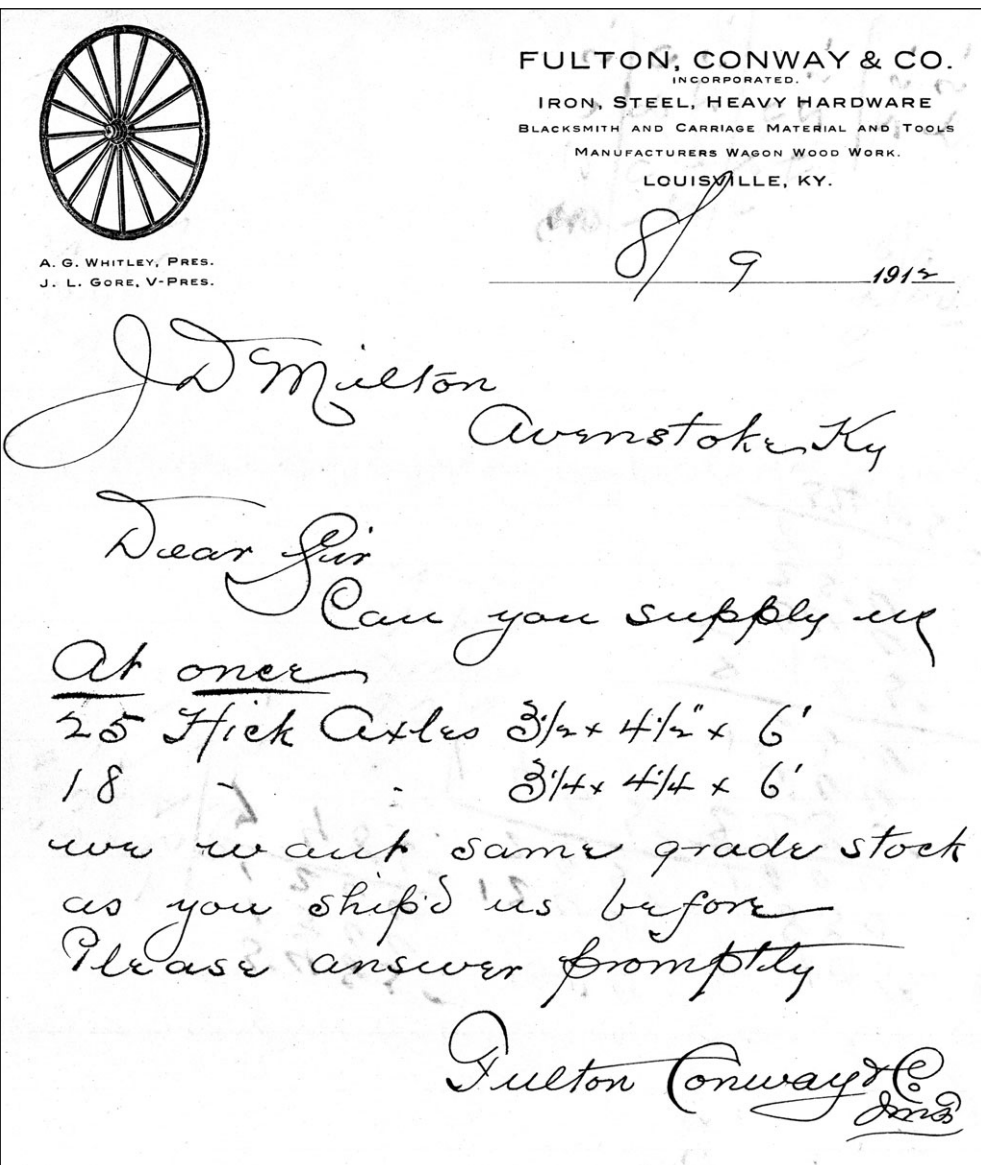 FULTON, CONWAY & CO.
INCORPORATED.
IRON, STEEL, HEAVY HARDWARE
BLACKSMITH AND CARRIAGE MATERIAL AND TOOLS
MANUFACTURERS WAGON WOOD WORK.
LOUISVILLE, KY.
A. G. WHITLEY, PRES.
J. L. GORE, V-PRES.
8/9 1912
J D Milton
Avenstoke Ky
Dear Sir
Can you supply us
At once
25 Hick Axles 3 1/2 x 4 1/2" x 6'
18 " " 3 1/4 x 4 1/4 x 6'
we want same grade stock
as you ship'd us before
Please answer promptly
Fulton Conway & Co